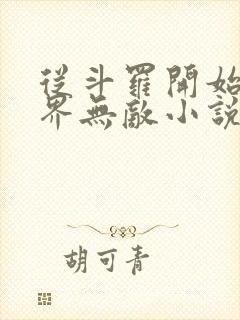 從斗羅開始
界無敵小說
胡可青